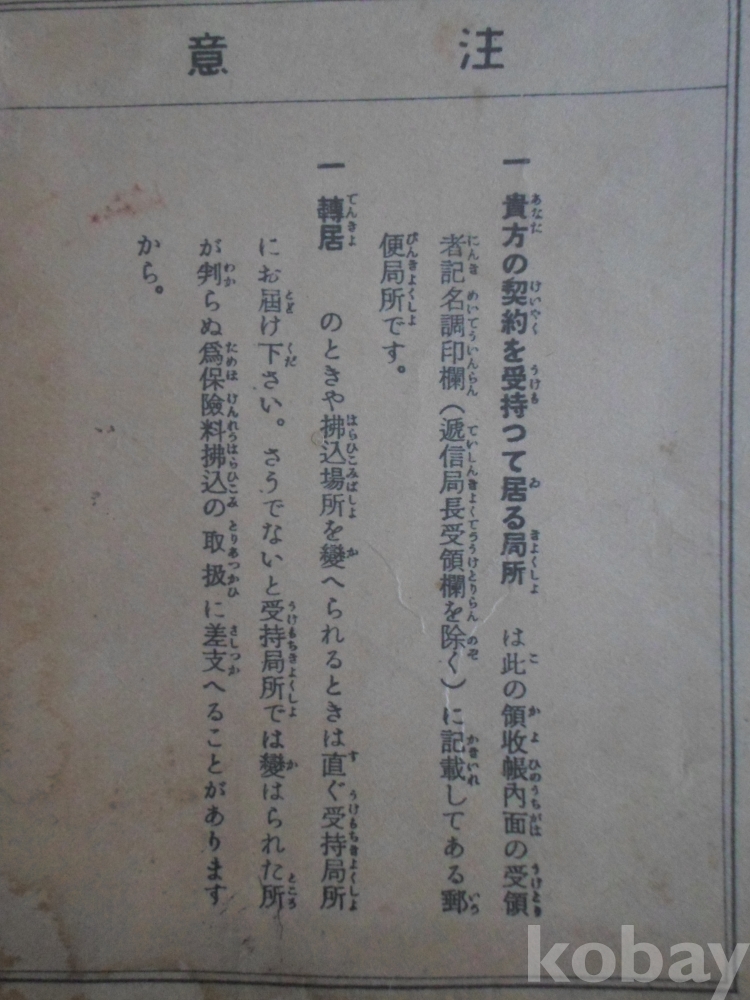 注意
一 貴方の契約を受持つて居る局所 は此の領收帳內面の受領
者記名調印欄(遞信局長受領欄を除く)に記載してある郵
便局所です。
一 轉居 のときや拂込場所を變へられるときは直ぐ受持局所
にお屆け下さい。さうでないと受持局所では變はられた所
が判らぬ爲保險料拂込の取扱に差支へることがあります
から。
kobay